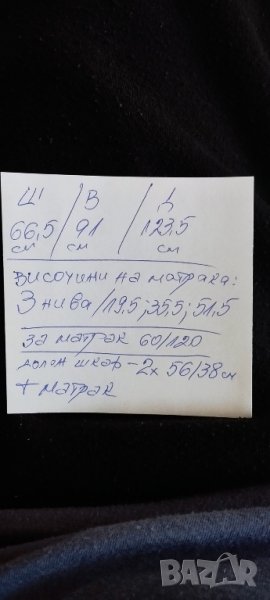 Ш / В / Д
66,5 / 91 / 123,5
см см см
височини на матрака:
3 нива /19,5; 35,5; 51,5
за матрак 60/120
долен шкаф - 2x 56/38см
+ матрак
BAZAR